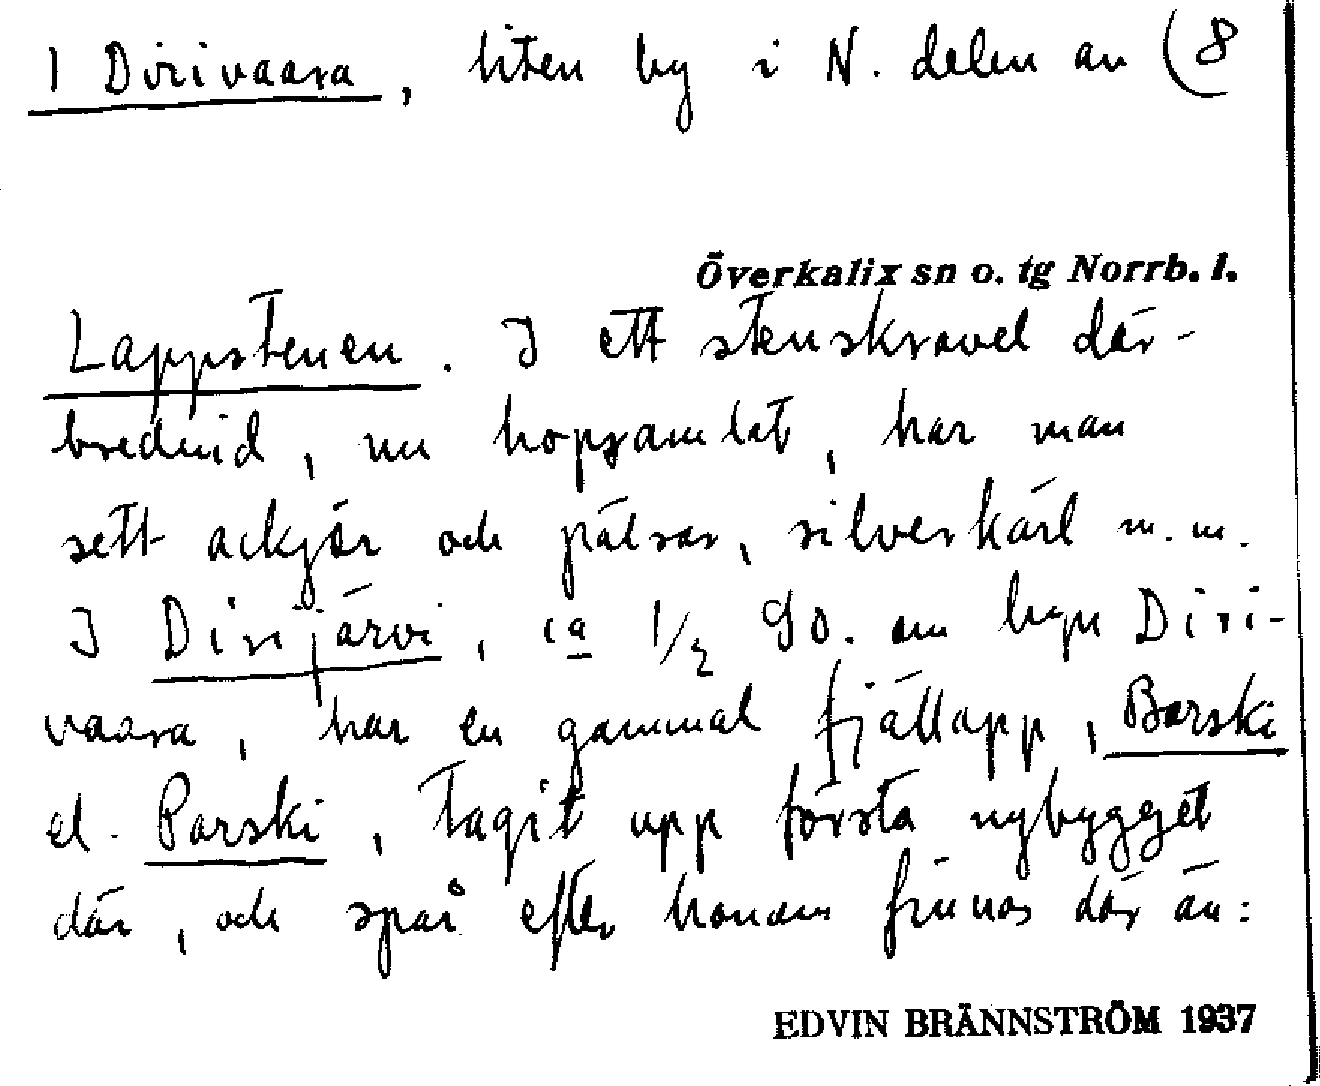 I Dirivaara, liten by i N. delen av (8
Överkalix sn o. tg Norrb. l.
Lappstenen. I ett stenskravel där-
bredvid, nu hopsamlat, har man
sett ackjor och pälsar, silverkärl m.m.
I Dirijärvi, ca 1/2 SO. om byn Diri-
vaara, har en gammal fjällapp, Barski
el. Parski, tagit upp första nybygget
där, och spår efter honom finnas där än:
EDVIN BRÄNNSTRÖM 1937